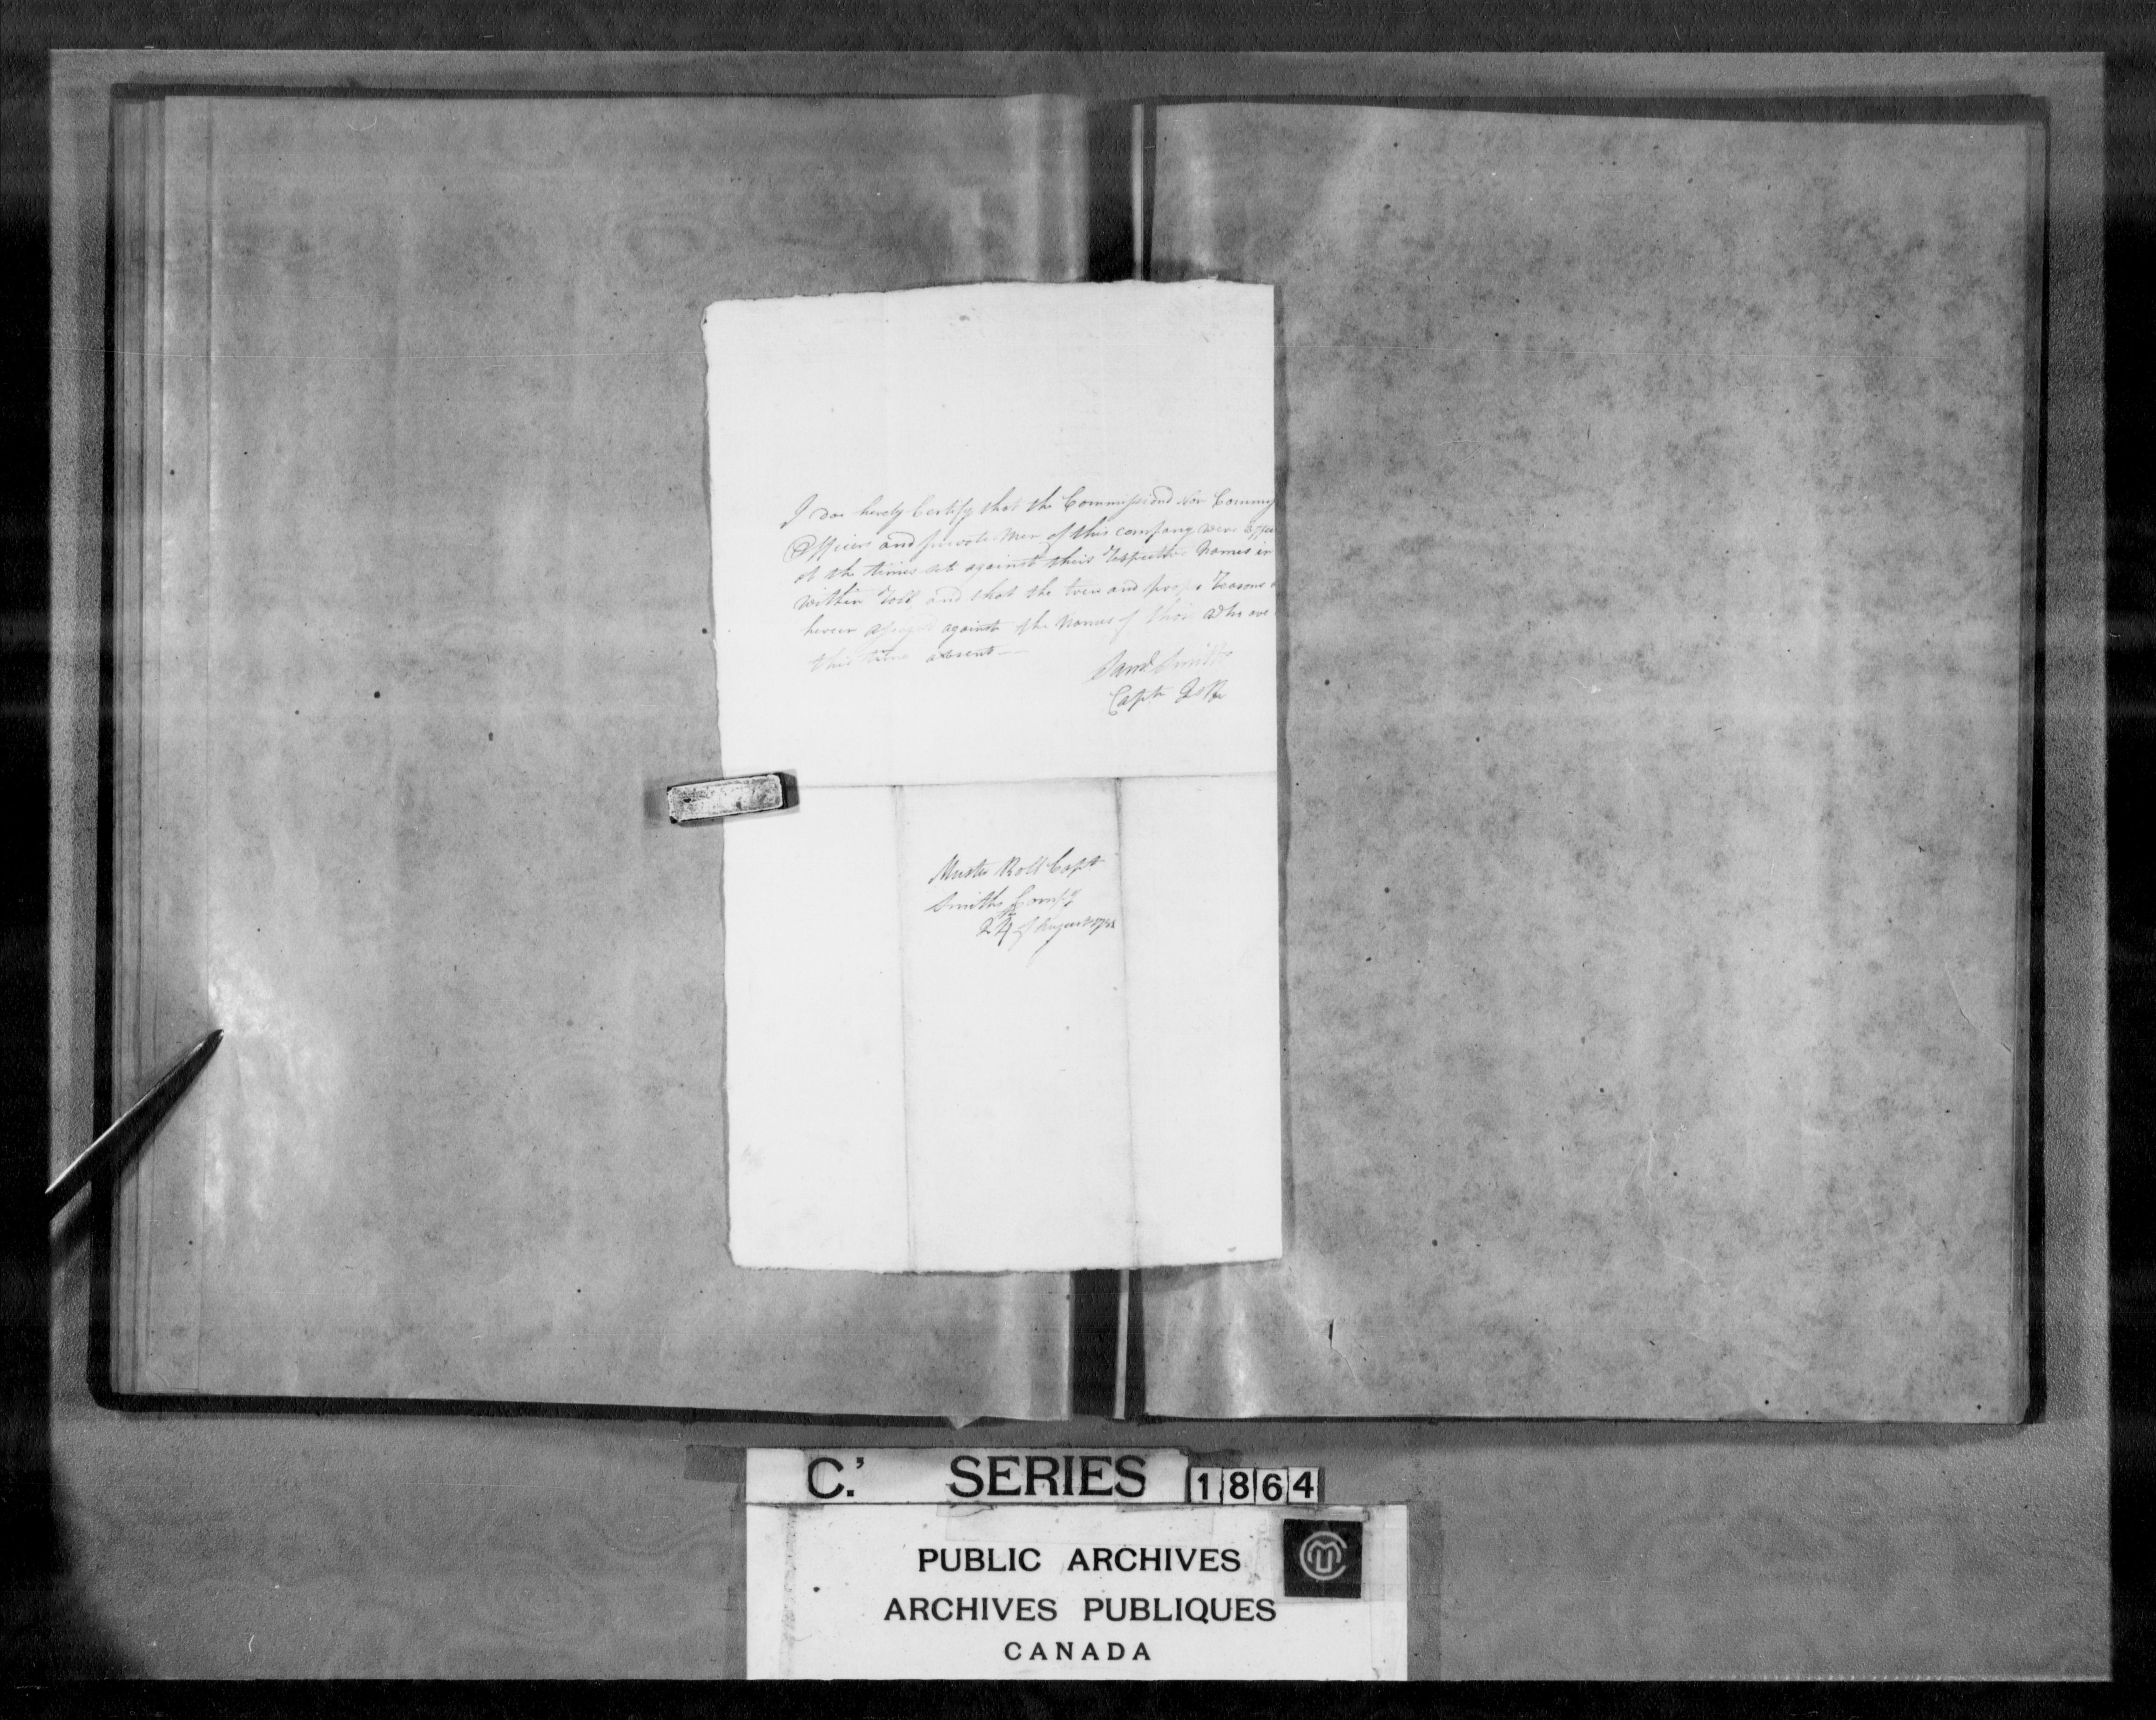 I doe herely Certify that the Commissiond Non Commiss
Officers and private Men of this company were Effec
at the times sett against their respective Names in
within Roll and that the true and proper reasons
herein against the Names of those who are
this time absent —
Saml Smith
Capt Q R
Muster Roll Capt
Smiths Compy
24th of August
C. SERIES 1864
PUBLIC ARCHIVES
ARCHIVES PUBLIQUES
CANADA